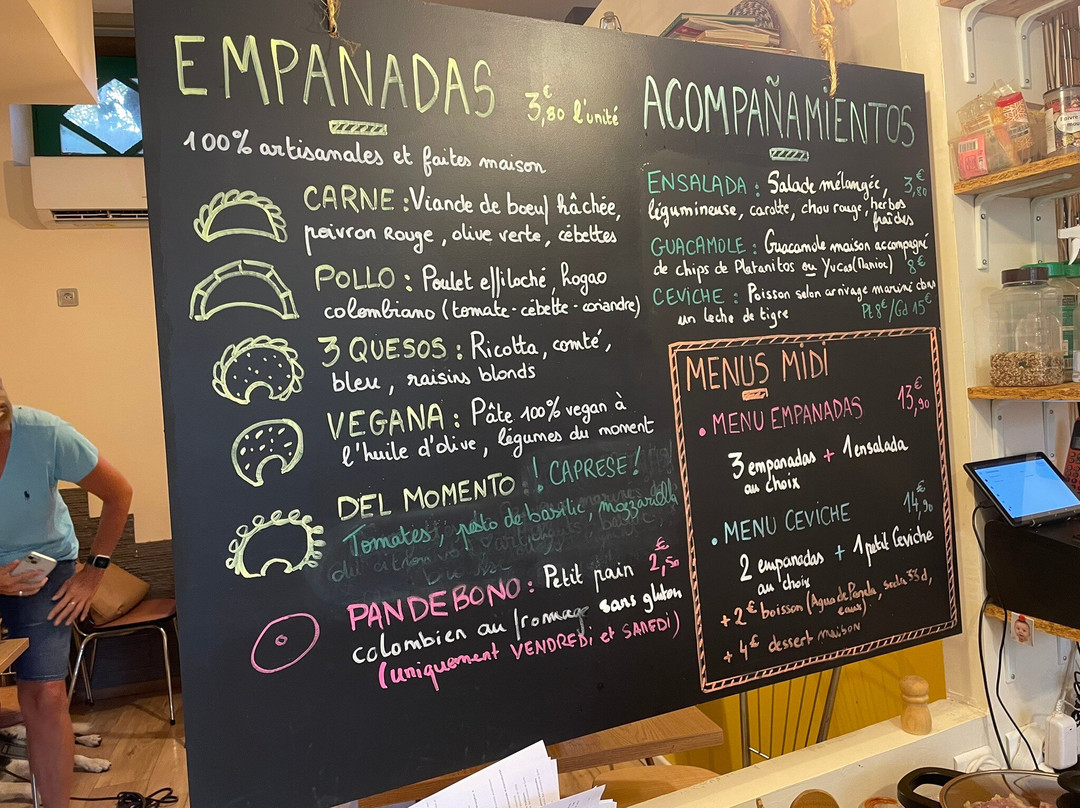 EMPANADAS
3,80€ l'unité
100% artisanales et faites maison
CARNE : Viande de boeuf hâchée,
poivron rouge, olive verte, cébettes
POLLO : Poulet effiloché, hogao
colombiano (tomate-cébette-coriandre)
3 QUESOS : Ricotta, comté,
bleu, raisins blonds
VEGANA : Pâte 100% vegan à
l'huile d'olive, légumes du moment
DEL MOMENTO ! CAPRESE !
Tomates, pesto de basilic, mozzarella
PANDEBONO : Petit pain 2,50€
colombien au fromage sans gluten
(uniquement VENDREDI et SAMEDI)
ACOMPAÑAMIENTOS
ENSALADA : Salade mélangée, 3,80€
légumineuse, carotte, chou rouge, herbes
fraîches
GUACAMOLE : Guacamole maison accompagné
de chips de Platanitos ou Yucas (Manioc) 8€
CEVICHE : Poisson selon arrivage mariné dans
un leche de tigre Pt 8€/Gd 15€
MENUS MIDI
• MENU EMPANADAS 13,90€
3 empanadas + 1 ensalada
au choix
• MENU CEVICHE 14,90€
2 empanadas + 1 petit Ceviche
au choix
+ 2€ boisson (Agua de Panela, soda 33cl,
eaux)
+ 4€ dessert maison